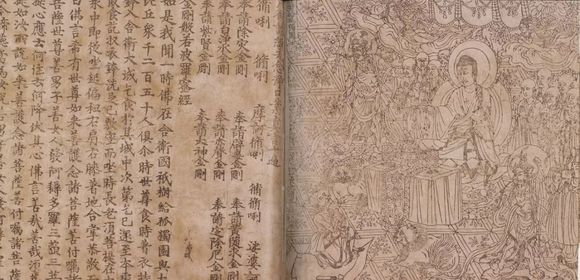 脩唎 摩訶脩唎 脩脩唎 娑婆
奉請除災金剛 奉請辟毒金剛 奉請黃隨求金剛
奉請白淨水金剛 奉請赤聲金剛 奉請定除厄金剛
奉請紫賢金剛 奉請大神金剛
金剛般若波羅蜜經
如是我聞一時佛在舍衛國祇樹給孤獨園與
比丘衆千二百五十人俱尒時世尊食時著衣持
鉢入舍衛大城乞食於其城中次第乞已還至本處
飯食訖收衣鉢洗足已敷座而坐時長老須菩提在
衆中即從座起偏袒右肩右膝著地合掌恭敬
白佛言希有世尊如來善護念諸菩薩善付囑諸菩
薩世尊善男子善女人發阿耨多羅三藐三
提心應云何住云何降伏其心佛言善哉善哉須
提如汝所說如來善護念諸菩薩善付囑諸菩薩